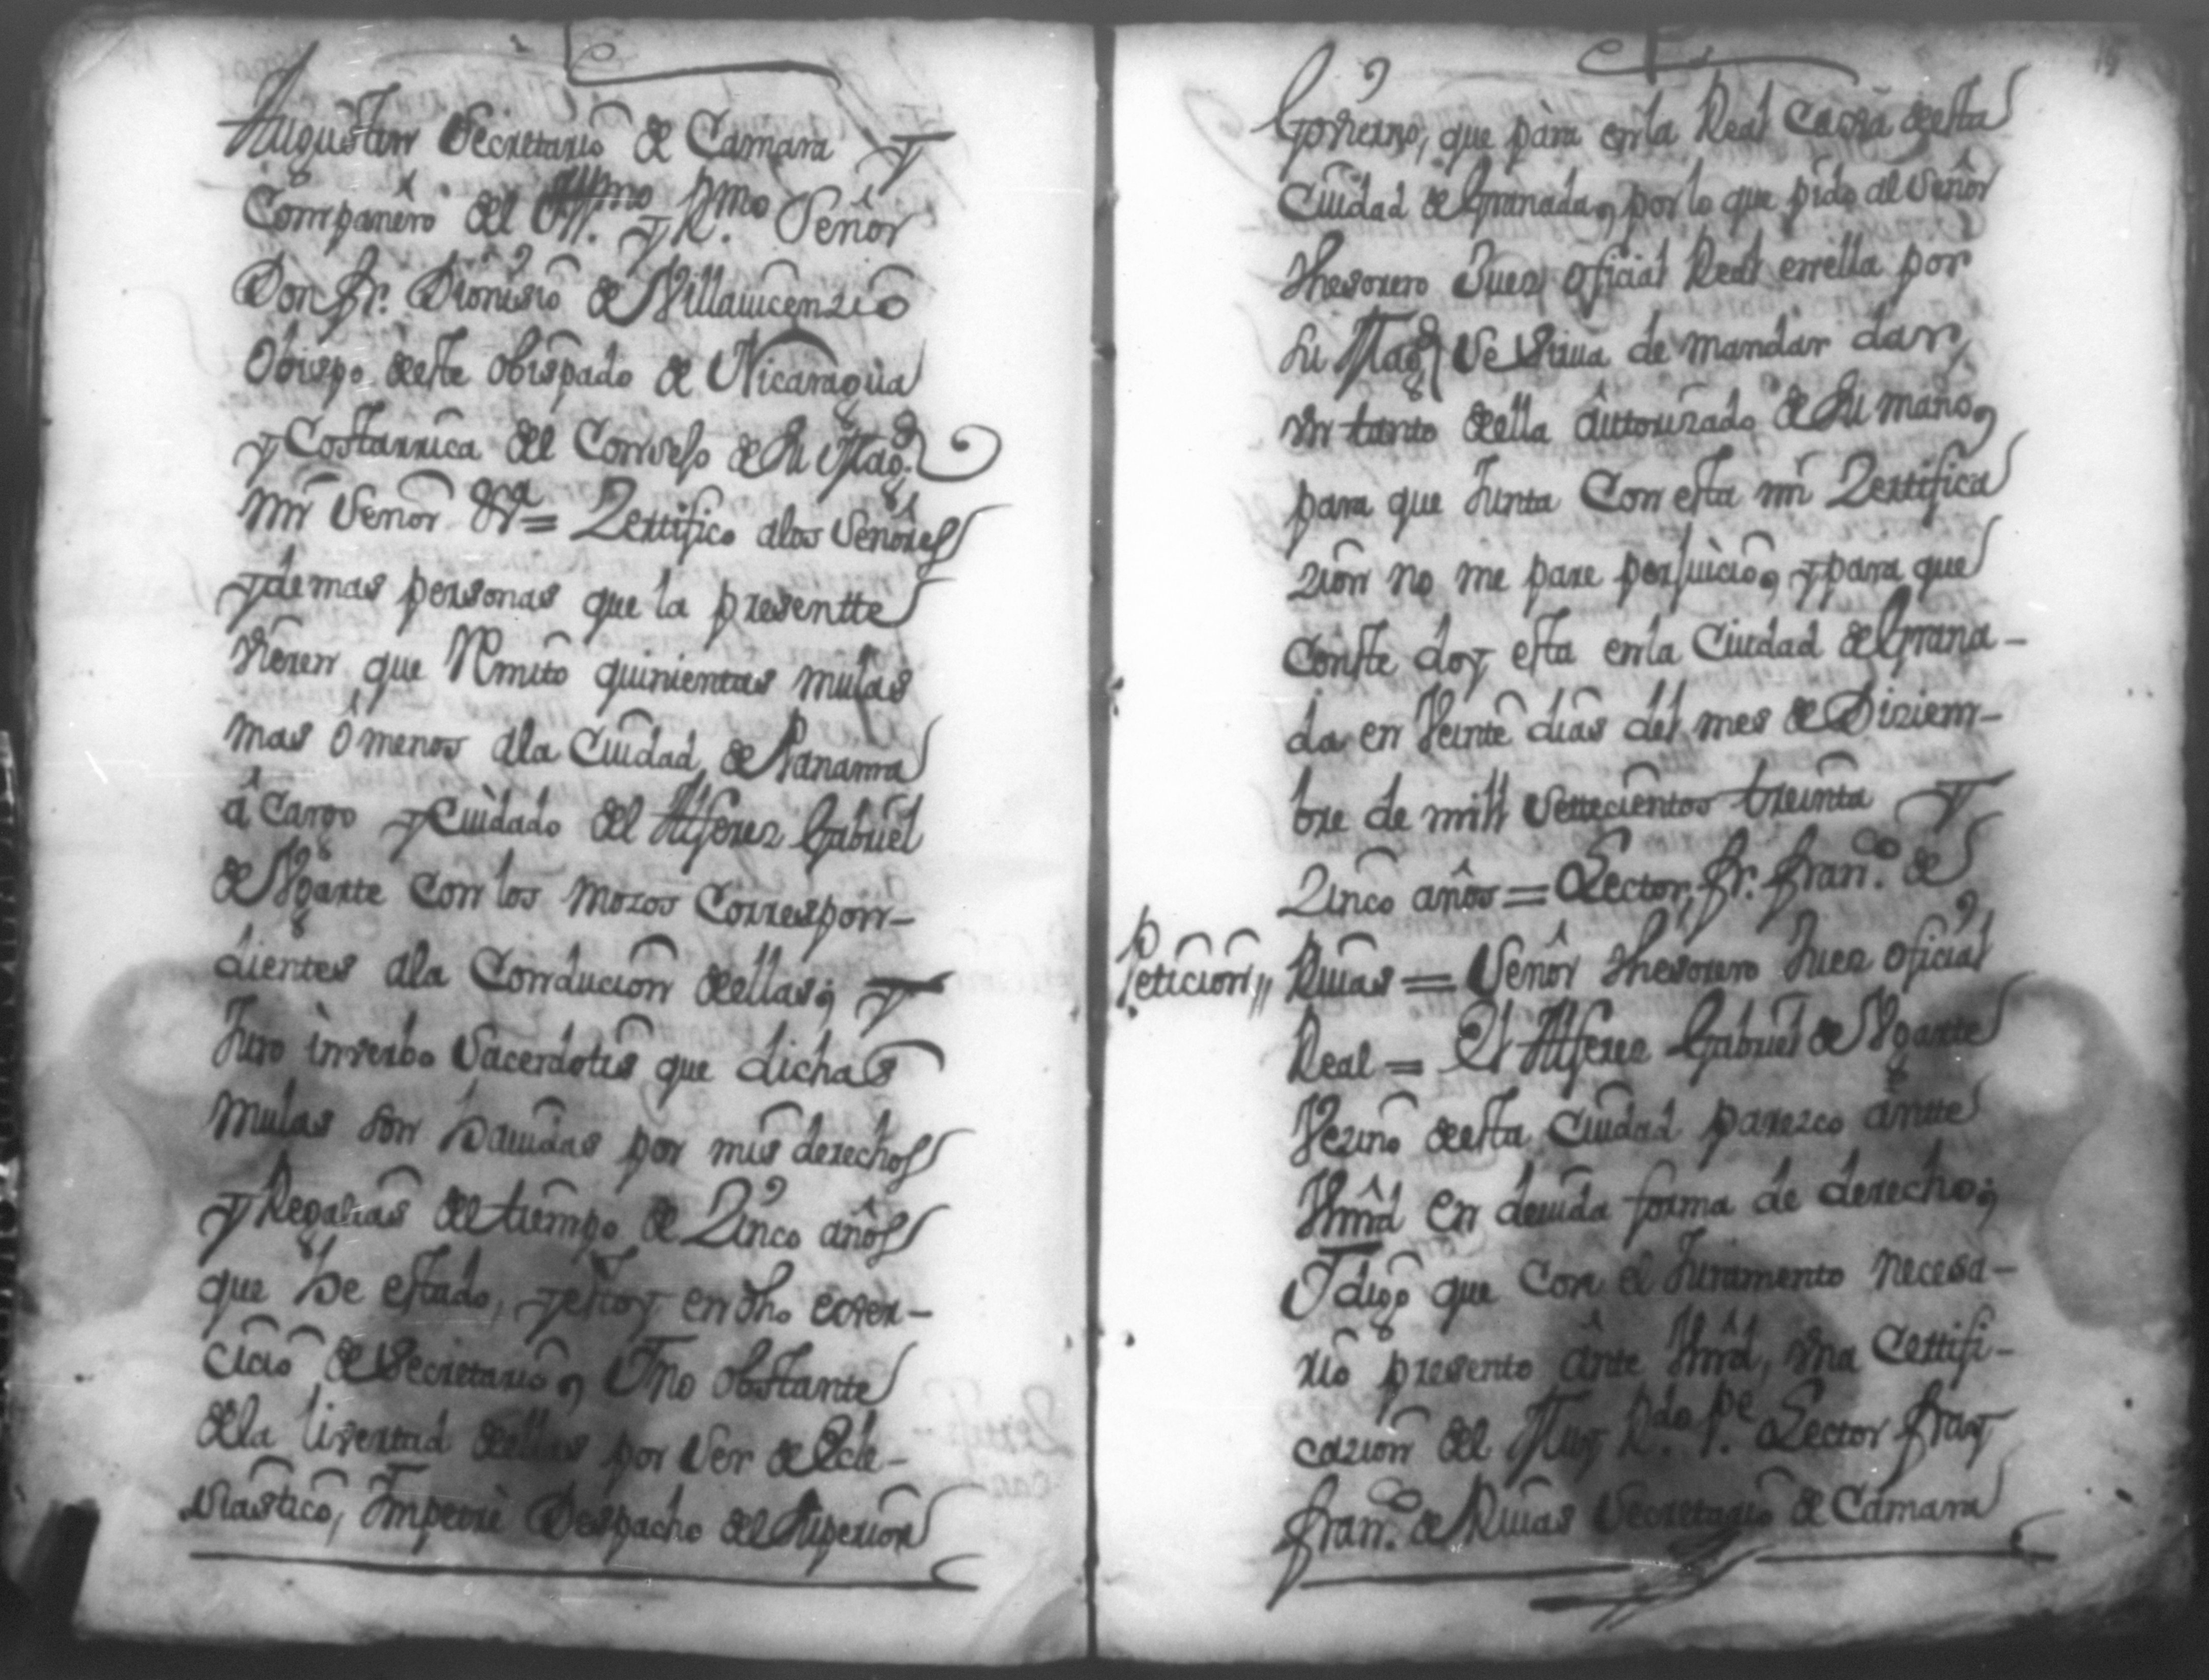 Augustin Secretario de Camara Y
Compañero del Illmo. y Rmo. Señor
Don fr. Dionisio de Villauicenzio
Obispo deste obispado de Nicaragua
y Costarrica del Consejo de Su Magd.
mi Señor &a = Zertifico alos Señores
y demas personas que la presentte
vieren que Remito quinientas mulas
mas ô menos ala Ciudad de Panama
â Cargo y Cuidado del Alferez Gabriel
de Ugarte Con los mozos Correspon-
dientes ala Conducion dellas; Y
Juro inverbo Sacerdotis que dichas
mulas son hauidas por mis derechos
y Regalias del tiempo de Zinco años
que he estado, y estoy en dho exer-
cicio de Secretario, Y no obstante
dela livertad dellas por Ser de Ecle-
siastico, Impetrè Despacho del Superior
Govierno, que pàra en la Real Caxa desta
Ciudad de Granada, por lo que pido al Señor
thesorero Juez oficial Real en ella por
Su Magd. Se Sirua de mandar dar
vn tanto della âutorizado de Su mano,
para que Junta Con esta mi Zertifica
zion no me pare perjuicio, y para que
Conste doy esta en la Ciudad de Grana-
da en Veinte dias del mes de Diziem-
bre de mill Settecientos treinta Y
Zinco años = Lector, fr. franco. de
Petticion// Riuas = Señor thesorero Juez oficial
Real = El Alferez Gabriel de Ugarte
Vezino desta Ciudad parezco antte
Vmrd en deuida forma de derecho;
Y digo que Con el Juramento necesa-
rio presento ânte Vmrd, vna Certifi-
cazion del Muy Rdo. Pe. Lector fray
franco. de Riuas Secretario de Camara